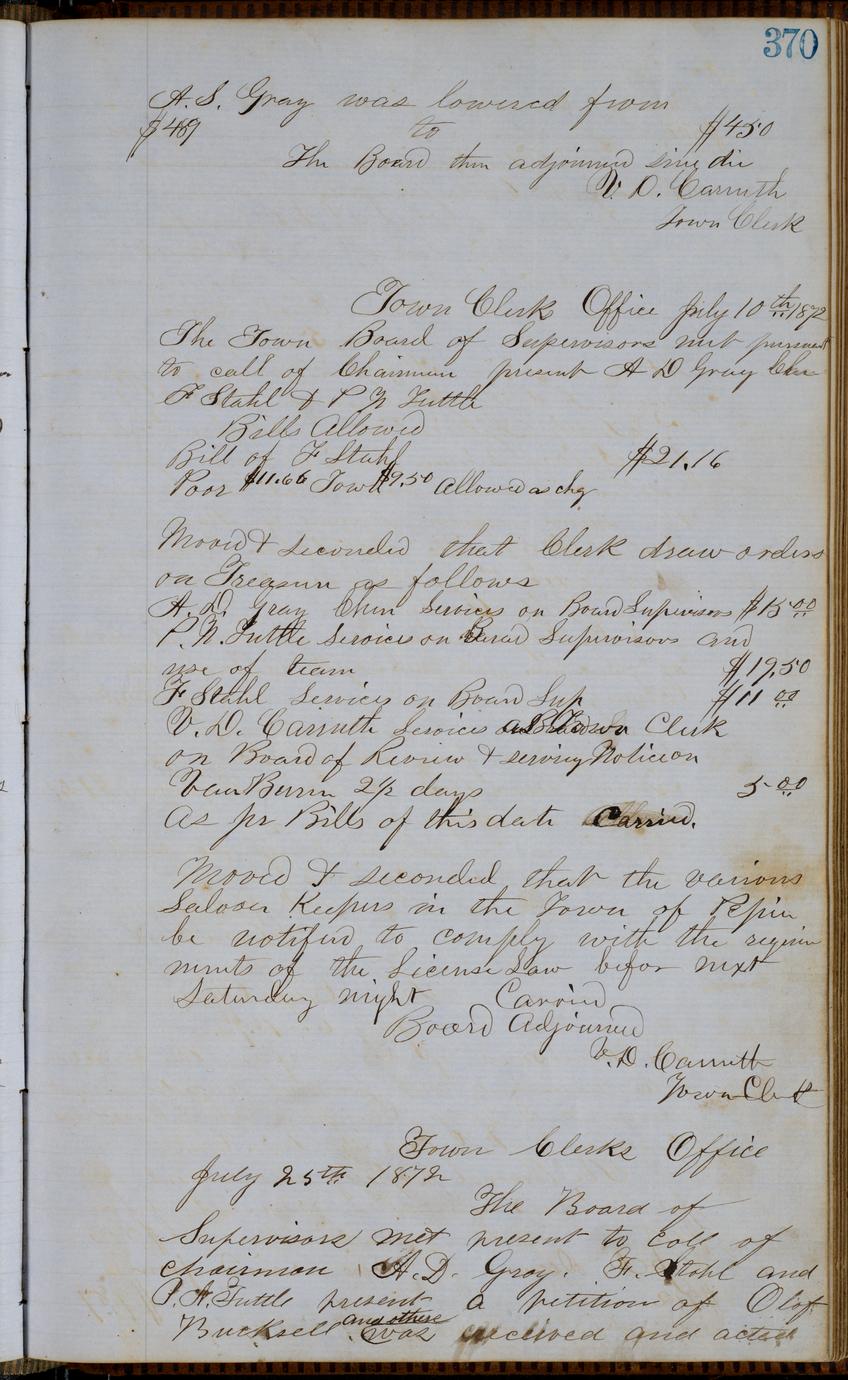 370
A. S. Gray was lowered from
$469 to $450
The Board then adjourned sine die
V. D. Carruth
Town Clerk
Town Clerk Office July 10th 1872
The Town Board of Supervisors met pursuant
to call of Chairman present A D Gray Chn
F Stahl & P N Tuttle
Bills Allowed
Bill of F Stahl $21.16
Poor $11.66 Town $9.50 Allowed as chg
Moved & seconded that Clerk draw orders
on Treasurer as follows
A. D. Gray Chm Services on Board Supervisors $15.00
P. N. Tuttle Services on Board Supervisors and
use of team $19.50
F Stahl Services on Board Sup $11 00
V. D. Carruth Services as Town Clerk
on Board of Review & serving Notice on
Van Buren 2 1/2 days 5 00
As pr Bills of this date Carried.
Moved & seconded that the various
Saloon Keepers in the Town of Pepin
be notified to comply with the requir
ments of the License Law befor next
Saturday night Carried
Board Adjourned
V. D. Carruth
Town Clerk
Town Clerks Office
July 25th 1872
The Board of
Supervisors met present to call of
chairman A. D. Gray. F. Stahl and
P. N. Tuttle present a petition of Olof
Bucksell and others was received and acted